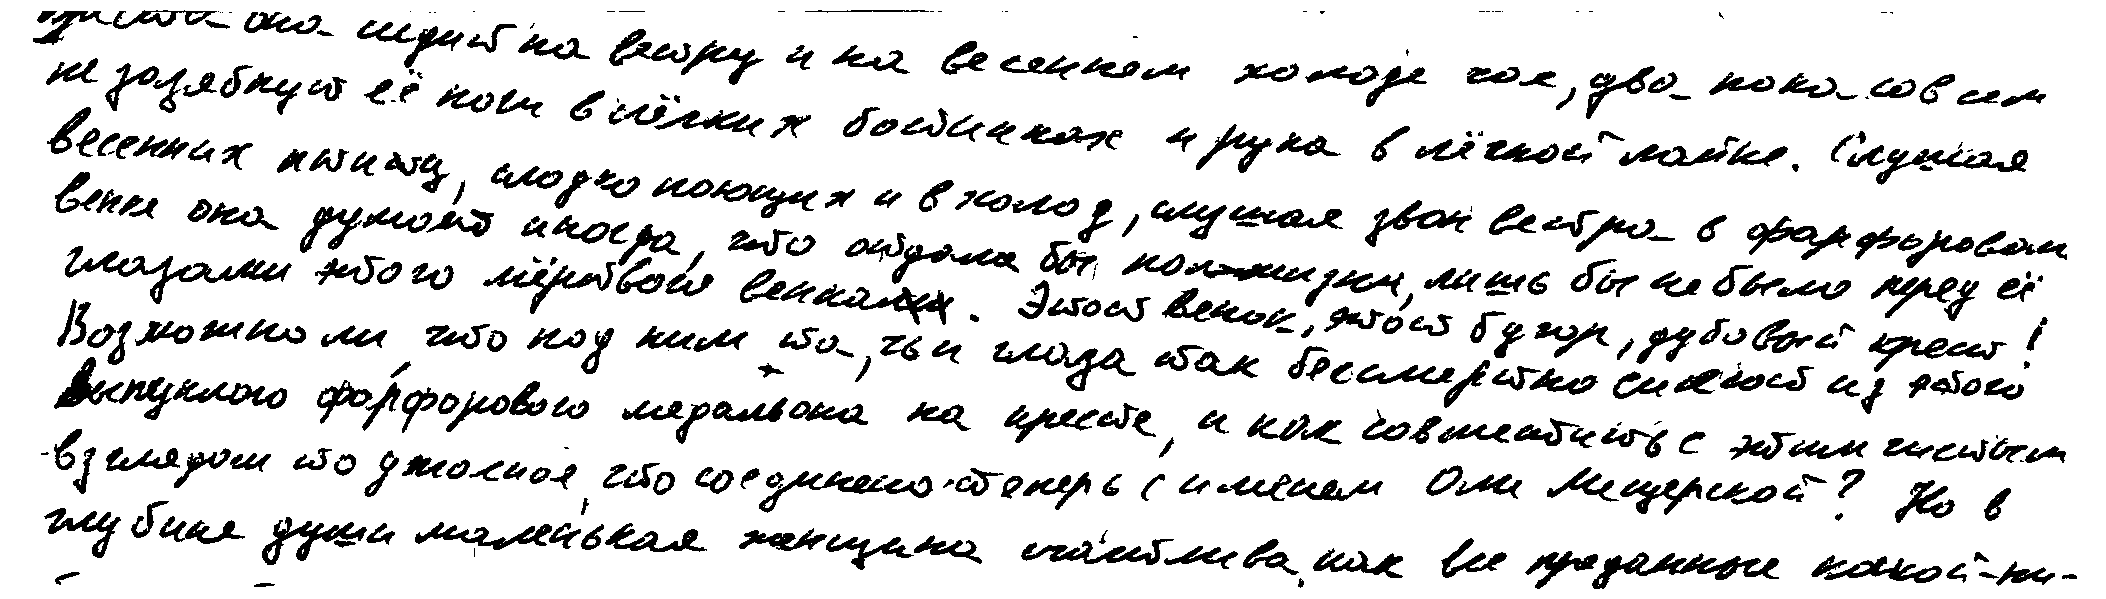 она сидит на ветру и на весеннем холоде час, два, пока совсем
не зазябнут её ноги в лёгких ботинках и рука в лёгкой лайке. Слушая
весенних птиц, сладко поющих и в холод, слушая звон ветра в фарфоровом
венке она думает иногда, что отдала бы полжизни, лишь бы не было перед её
глазами этого мёртвого венка. Этот венок, этот бугор, дубовый крест!
Возможно ли что под ним та, чьи глаза так бессмертно сияют из этого
выпуклого фарфорового медальона на кресте, и как совместить с этим чистым
взглядом то ужасное, что соединено теперь с именем Оли Мещерской? Но в
глубине души маленькая женщина счастлива, как все преданные какой-ни-